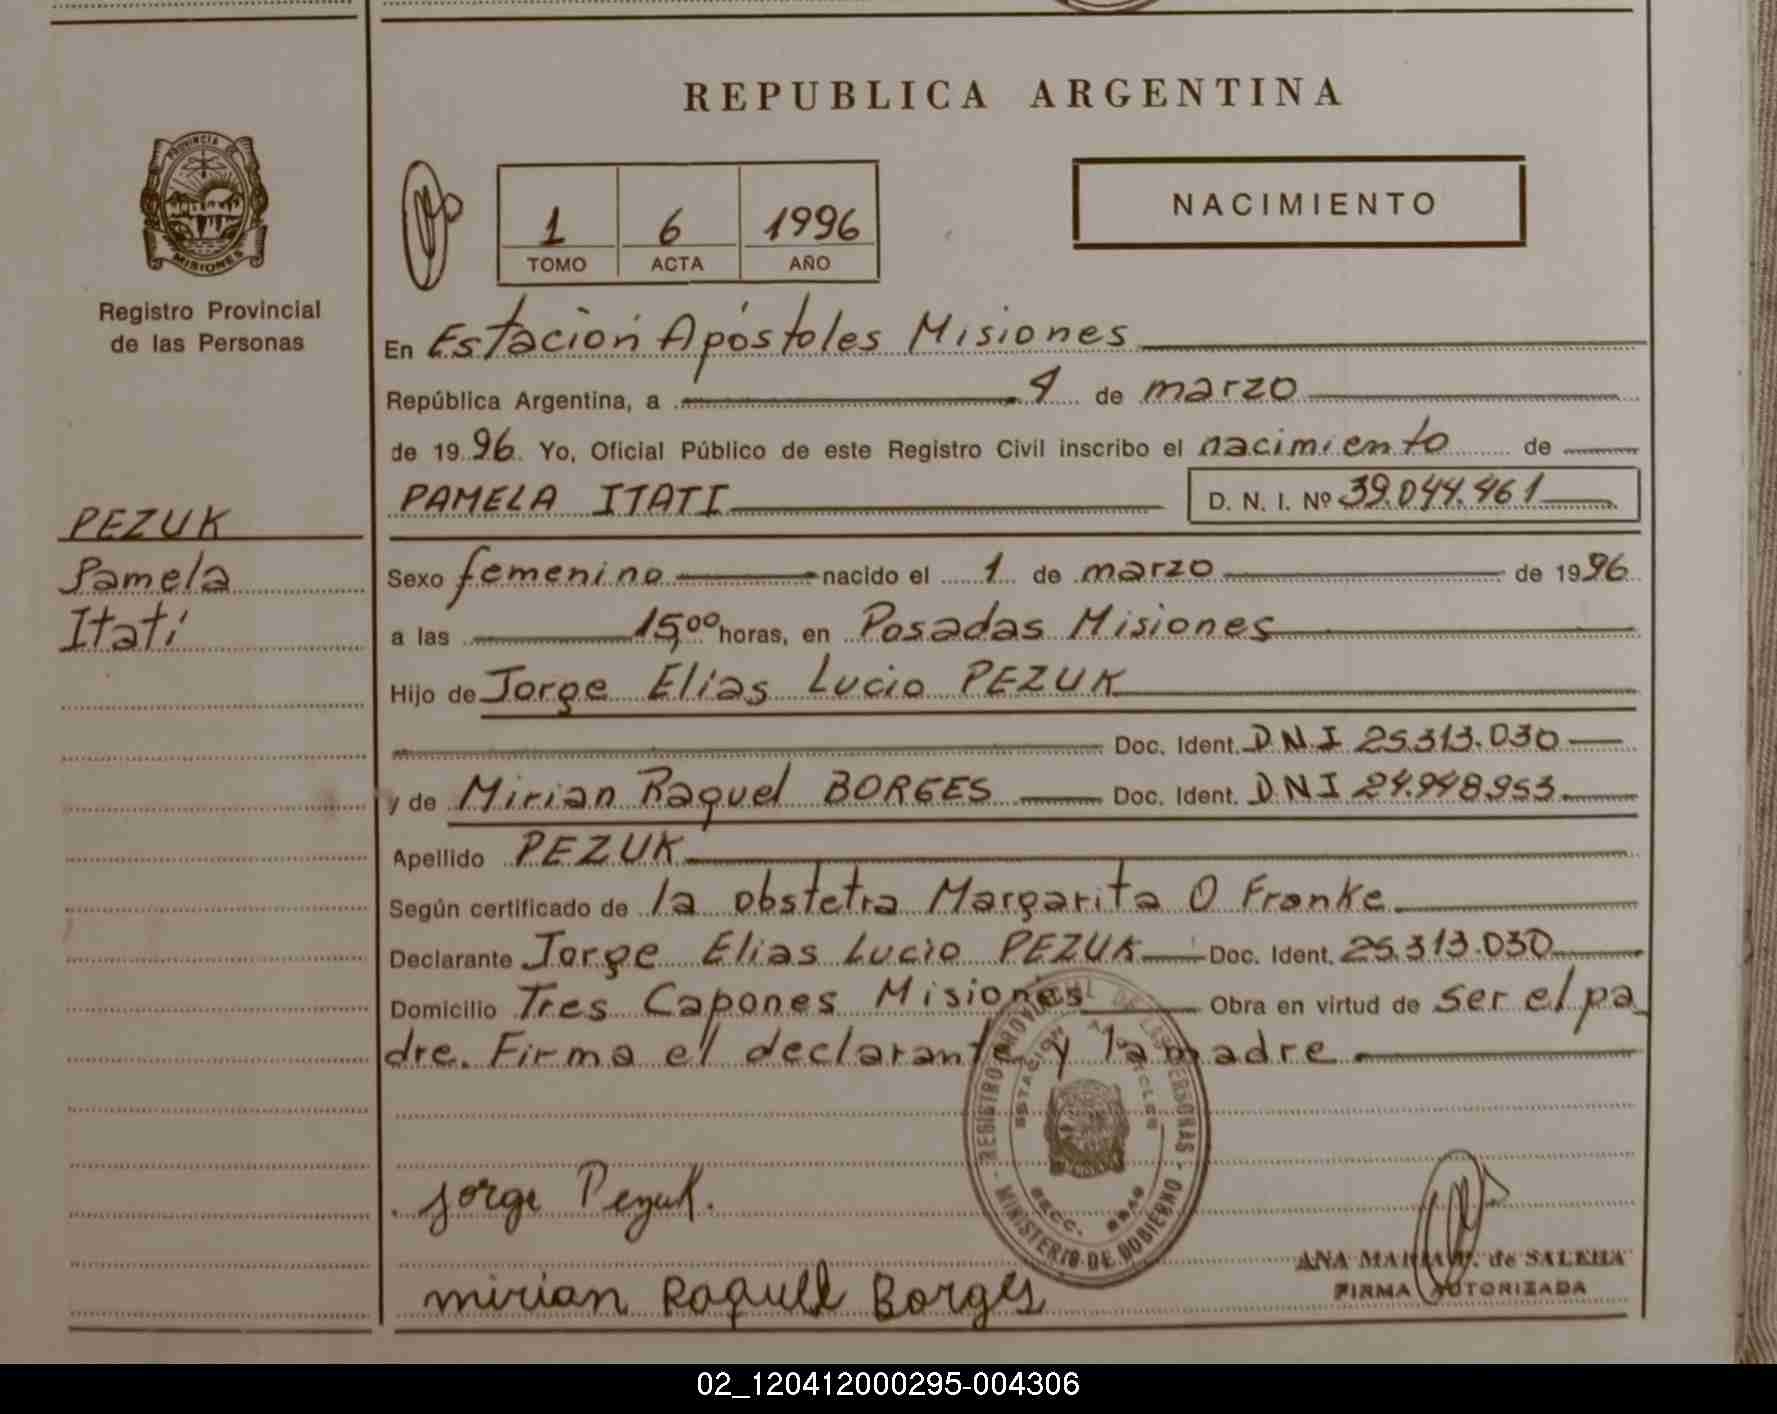 REPUBLICA ARGENTINA
PROVINCIA DE
MISIONES
Registro Provincial
de las Personas
1 6 1996
TOMO ACTA AÑO
NACIMIENTO
En Estación Apóstoles Misiones
República Argentina, a 4 de marzo
de 1996 Yo, Oficial Público de este Registro Civil inscribo el nacimiento de
PAMELA ITATI D. N. I. Nº 39.044.461
PEZUK
Pamela
Itatí
Sexo femenino nacido el 1 de marzo de 1996
a las 15,00 horas, en Posadas Misiones
Hijo de Jorge Elias Lucio PEZUK
Doc. Ident. DNI 25.313.030
y de Mirian Raquel BORGES Doc. Ident. DNI 24.948.953
Apellido PEZUK
Según certificado de la obstetra Margarita O Franke
Declarante Jorge Elias Lucio PEZUK Doc. Ident. 25.313.030
Domicilio Tres Capones Misiones Obra en virtud de ser el pa
dre. Firma el declarante y la madre
REGISTRO PROVINCIAL DE LAS PERSONAS
MINISTERIO DE GOBIERNO
ESTACION APOSTOLES
SECC.
Jorge Pezuk.
mirian Raquell Borges
ANA MARIA de SALEHA
FIRMA AUTORIZADA
02_120412000295-004306